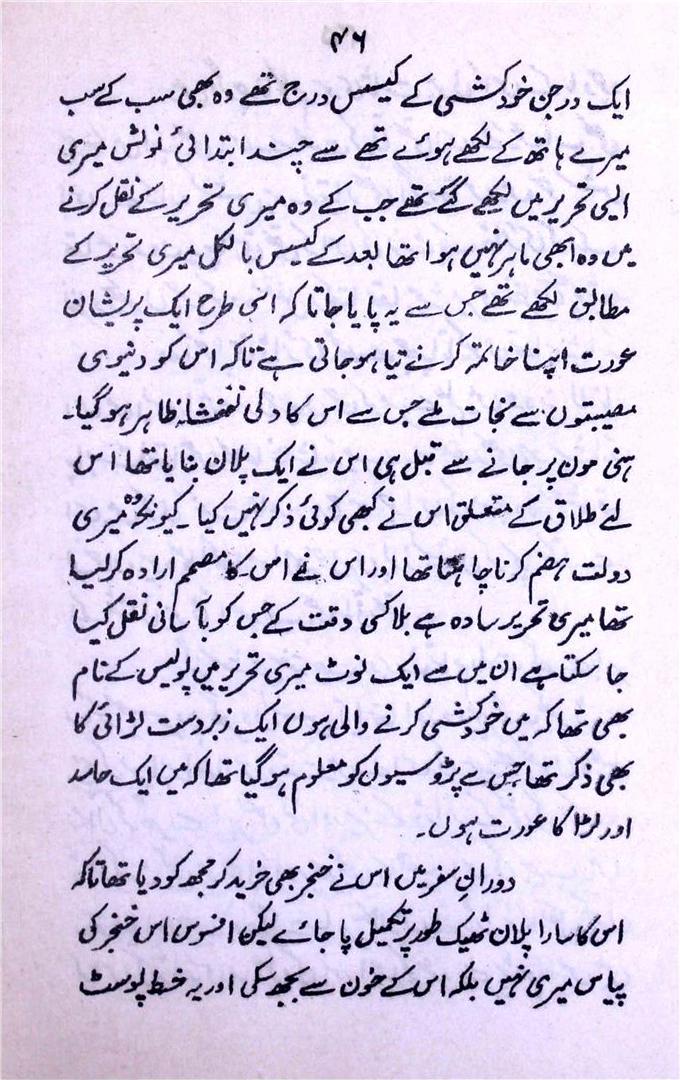 ۴۶
ایک درجن خودکشی کے کیسس درج تھے وہ بھی سب کے سب
میرے ہاتھ کے لکھے ہوئے تھے سے چند ابتدائی نوٹس میری
ایسی تحریر میں لکھے گئے تھے جب کے وہ میری تحریر کے نقل کرنے
میں وہ ابھی ماہر نہیں ہوا تھا بعد کے کیسس بالکل میری تحریر کے
مطابق لکھے تھے جس سے یہ پایا جاتا کہ اسی طرح ایک پریشان
عورت اپنا خاتمہ کرنے تیار ہوجاتی ہے تاکہ اس کو دنیوی
مصیبتوں سے نجات ملے جس سے اس کا دلی نقشہ ظاہر ہوگیا۔
ہنی مون پر جانے سے قبل ہی اس نے ایک پلان بنایا تھا اس
لئے طلاق کے متعلق اس نے کبھی کوئی ذکر نہیں کیا۔ کیونکہ وہ میری
دولت ہضم کرنا چاہتا تھا اور اس نے اس کا مصمم ارادہ کرلیا
تھا میری تحریر سادہ ہے بلا کسی دقت کے جس کو بآسانی نقل کیا
جا سکتا ہے ان میں سے ایک نوٹ میری تحریر میں پولیس کے نام
بھی تھا کہ میں خودکشی کرنے والی ہوں ایک زبردست لڑائی کا
بھی ذکر تھا جس سے پڑوسیوں کو معلوم ہوگیا تھا کہ میں ایک حاسد
اور لڑاکا عورت ہوں۔
دورانِ سفر میں اس نے خنجر بھی خرید کر مجھ کو دیا تھا تاکہ
اس کا سارا پلان ٹھیک طور پر تکمیل پا جائے لیکن افسوس اس خنجر کی
پیاس میری نہیں بلکہ اس کے خون سے بجھ سکی اور یہ خط پوسٹ